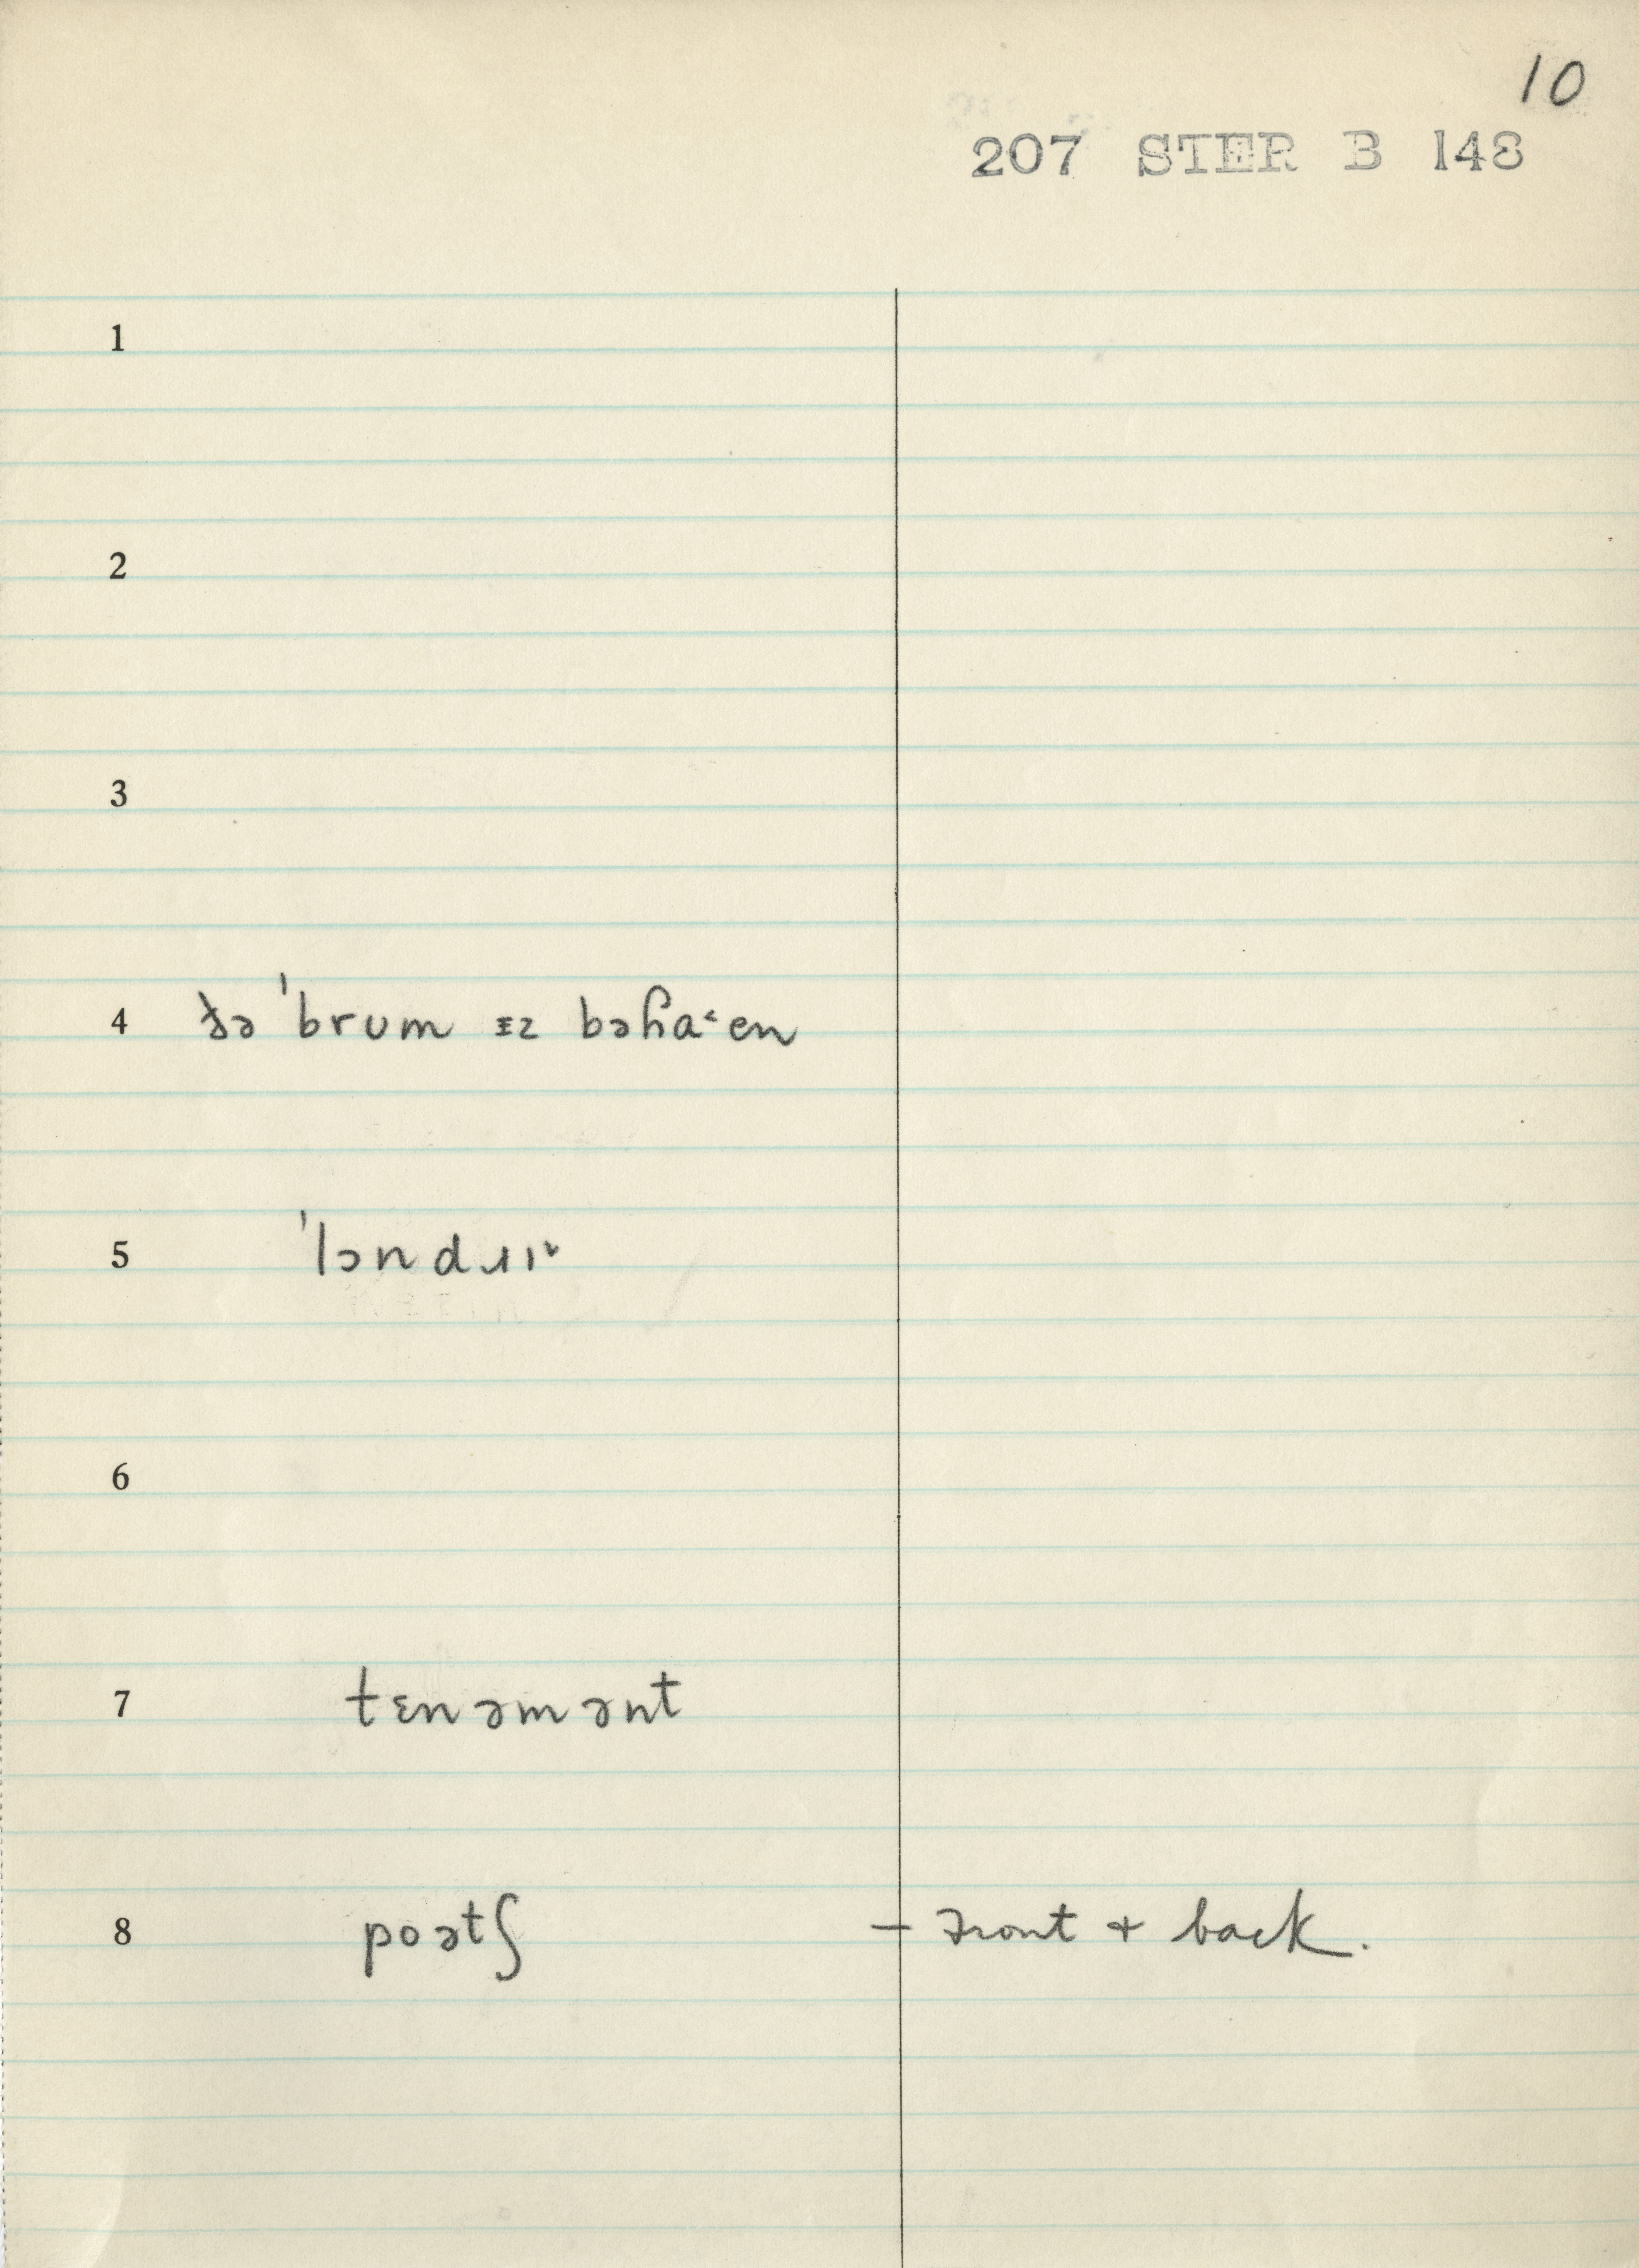 10
207 STER B 148
1
2
3
4 ðə ˈbrum ɪz bəɦa˂en
5 ˈlɔndɹɪi˅
6
7 tɛnəmənt
8 poətʃ – front + back.